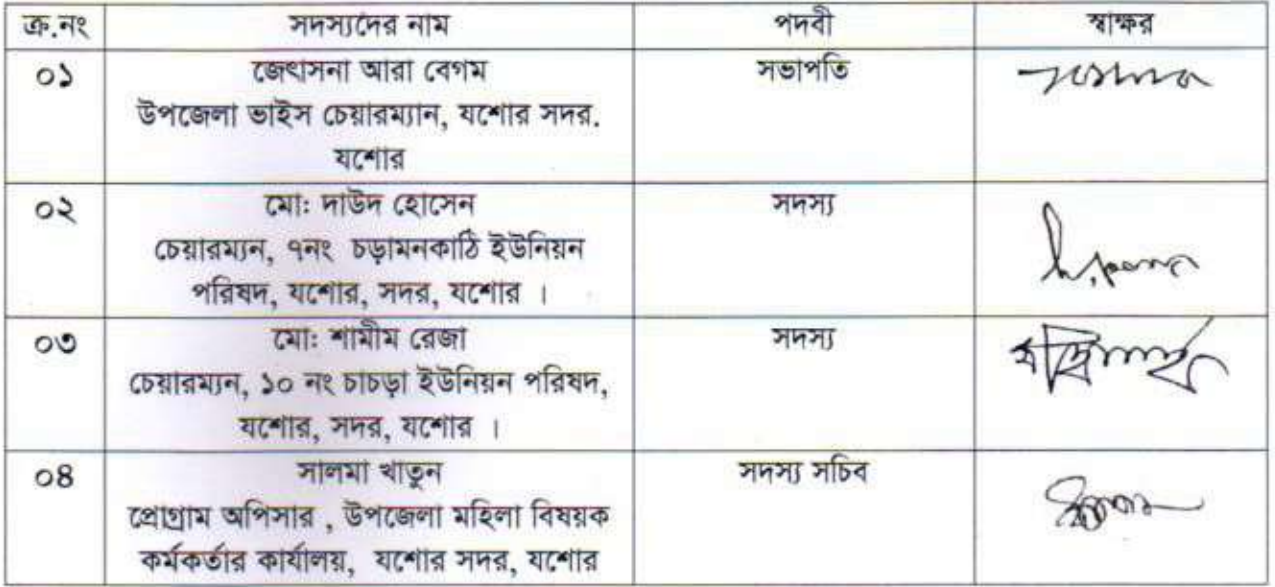 ক্র.নং সদস্যদের নাম পদবী স্বাক্ষর
০১ জেৎসনা আরা বেগম সভাপতি
উপজেলা ভাইস চেয়ারম্যান, যশোর সদর.
যশোর
০২ মো: দাউদ হোসেন সদস্য
চেয়ারম্যন, ৭নং চড়ামনকাঠি ইউনিয়ন
পরিষদ, যশোর, সদর, যশোর ।
০৩ মো: শামীম রেজা সদস্য
চেয়ারম্যন, ১০ নং চাচড়া ইউনিয়ন পরিষদ,
যশোর, সদর, যশোর ।
০৪ সালমা খাতুন সদস্য সচিব
প্রোগ্রাম অপিসার , উপজেলা মহিলা বিষয়ক
কর্মকর্তার কার্যালয়, যশোর সদর, যশোর